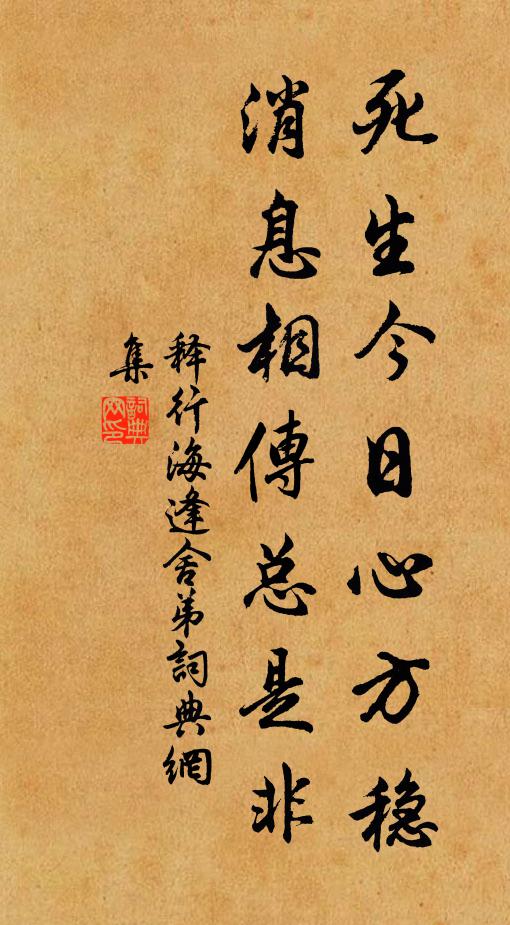 死生今日心方稳
消息相傳总是非
释行海逢舍弟詞典網
集
詞典網印